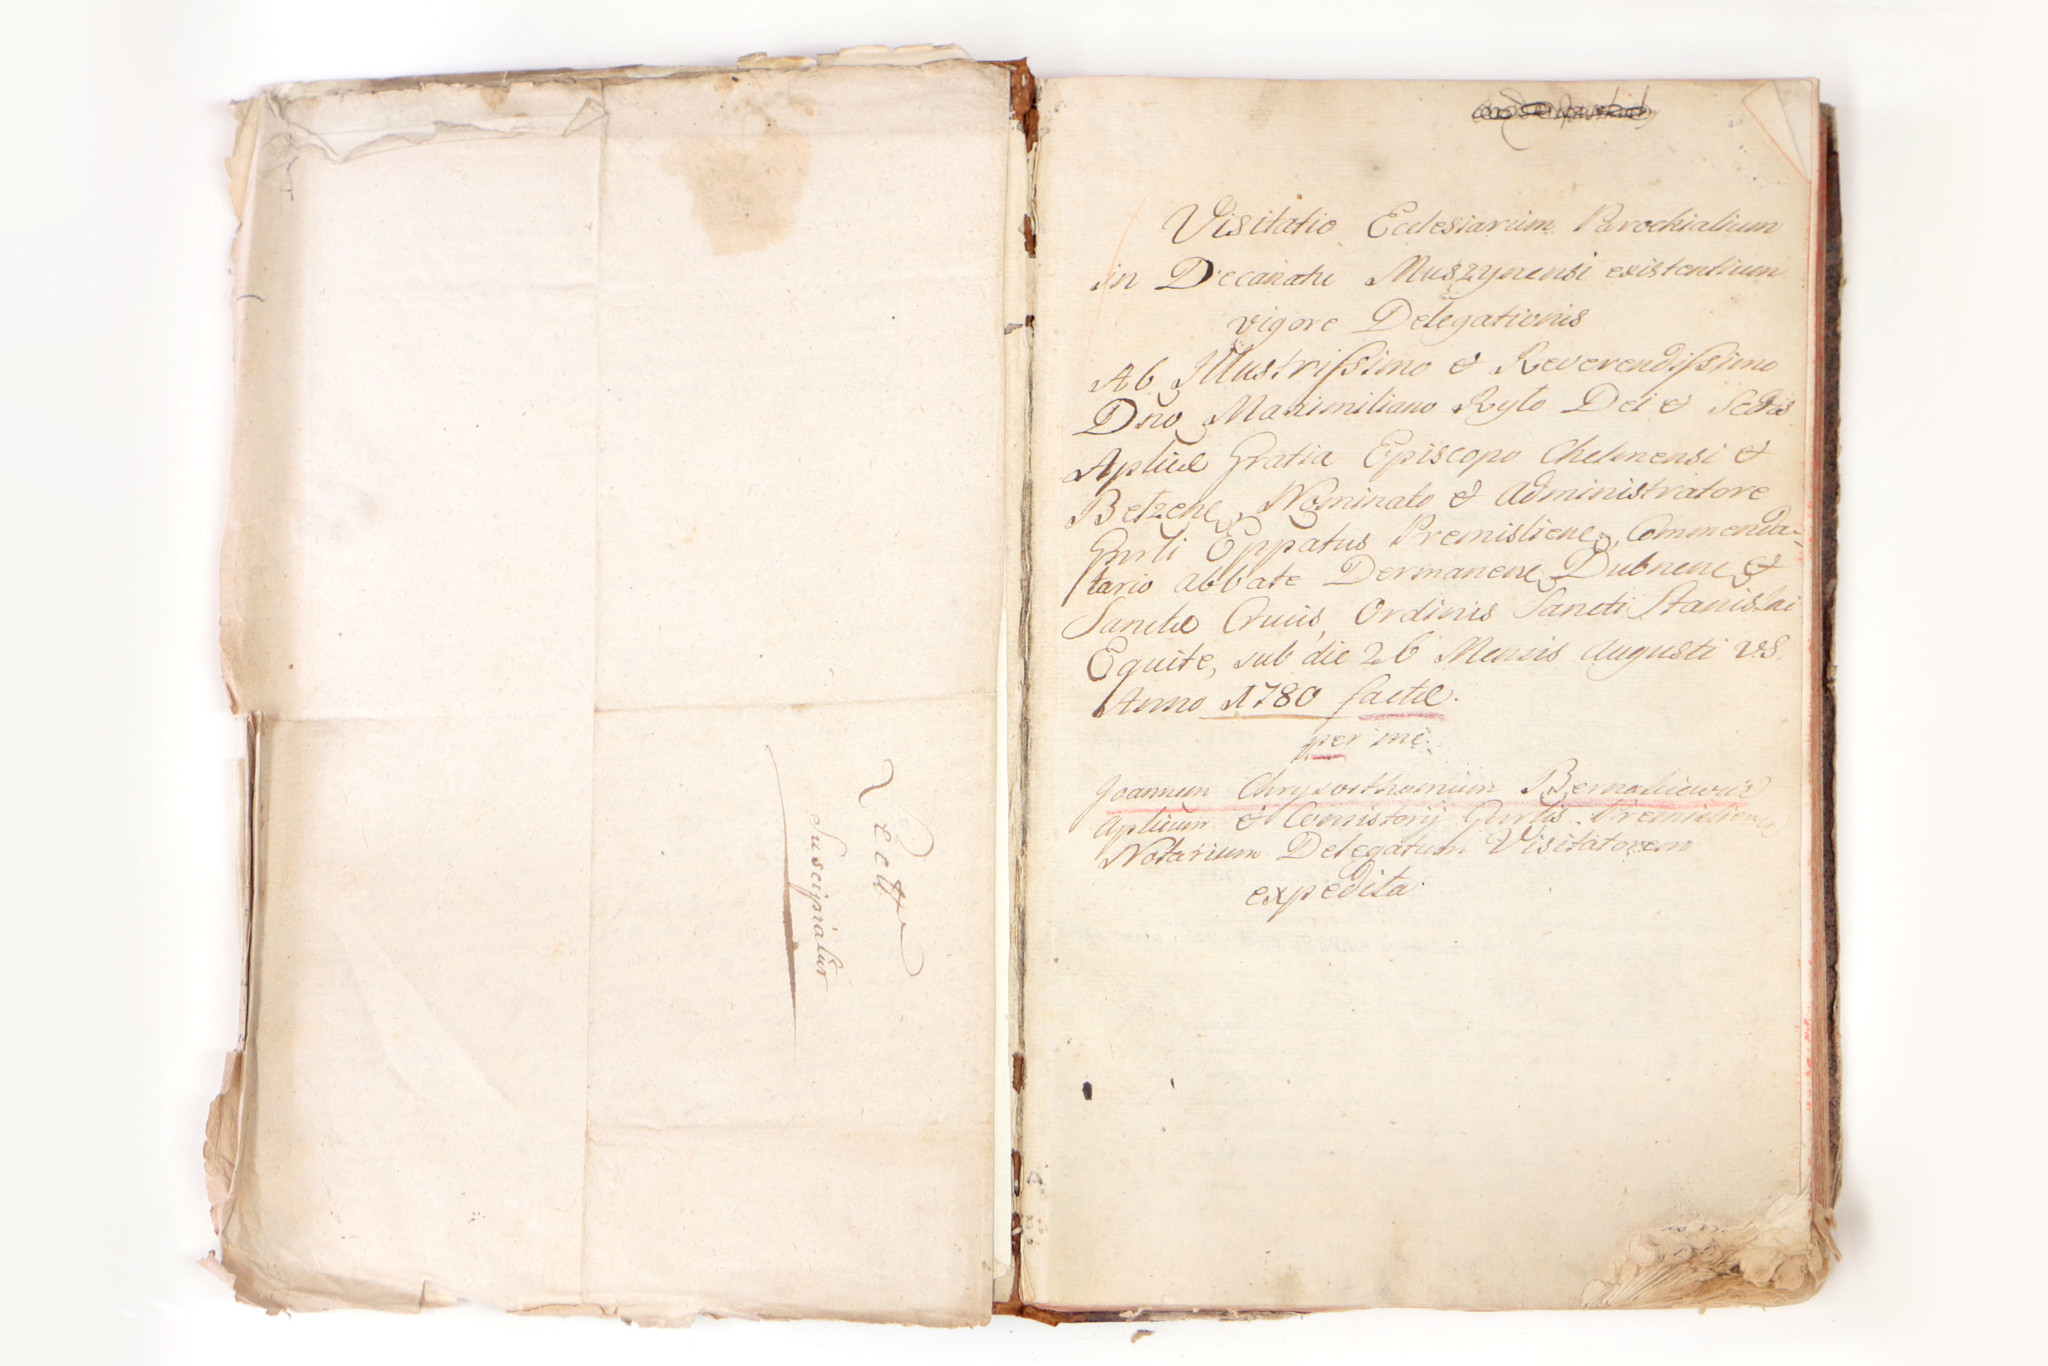 Rectt
Suscipiatur
Visitatio Ecclesiarum Parochialium
in Decanatu Muszynensi existentium
vigore Delegationis
Ab Illustrissimo & Reverendissimo
Dno Maximiliano Ryło Dei & Sedis
Aplicæ Gratia Episcopo Chelmensi &
Belzene, Nominato & Administratore
Gnrli Eppatus Premisliene, Commenda-
tario abbate Dermanene, Dubnene &
Sanctæ Crucis, Ordinis Sancti Stanislai
Equite, sub die 26 Mensis Augusti v.S.
Anno 1780 factæ.
per me.
Joannem Chrysosthomum
Aplicum & Consistorij Gnrlis Premisliene
Notarium Delegatum Visitatorem
expedita.